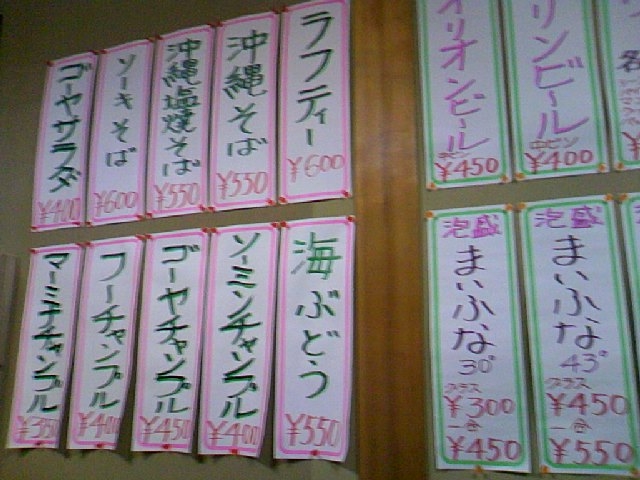 ラフティー
¥600
沖縄そば
¥550
沖縄塩焼そば
¥550
ソーキそば
¥600
ゴーヤサラダ
¥400
海ぶどう
¥550
ソーミンチャンプル
¥400
ゴーヤチャンプル
¥450
フーチャンプル
¥400
マーミナチャンプル
¥350
リンビール
中ビン
¥400
オリオンビール
¥450
泡盛
まいふな
43°
グラス
¥450
一合
¥550
泡盛
まいふな
30°
グラス
¥300
一合
¥450